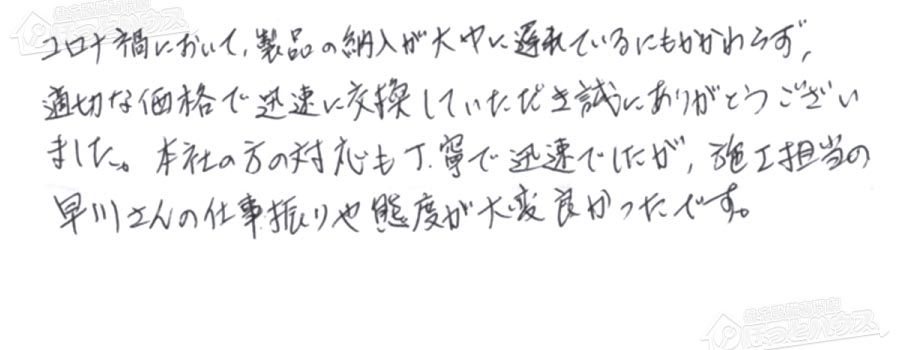 コロナ禍において、製品の納入が大巾に遅れているにもかかわらず、
適切な価格で迅速に交換していただき誠にありがとうござい
ました。本社の方の対応も丁寧で迅速でしたが、施工担当の
早川さんの仕事振りや態度が大変良かったです。
ほっとハウス